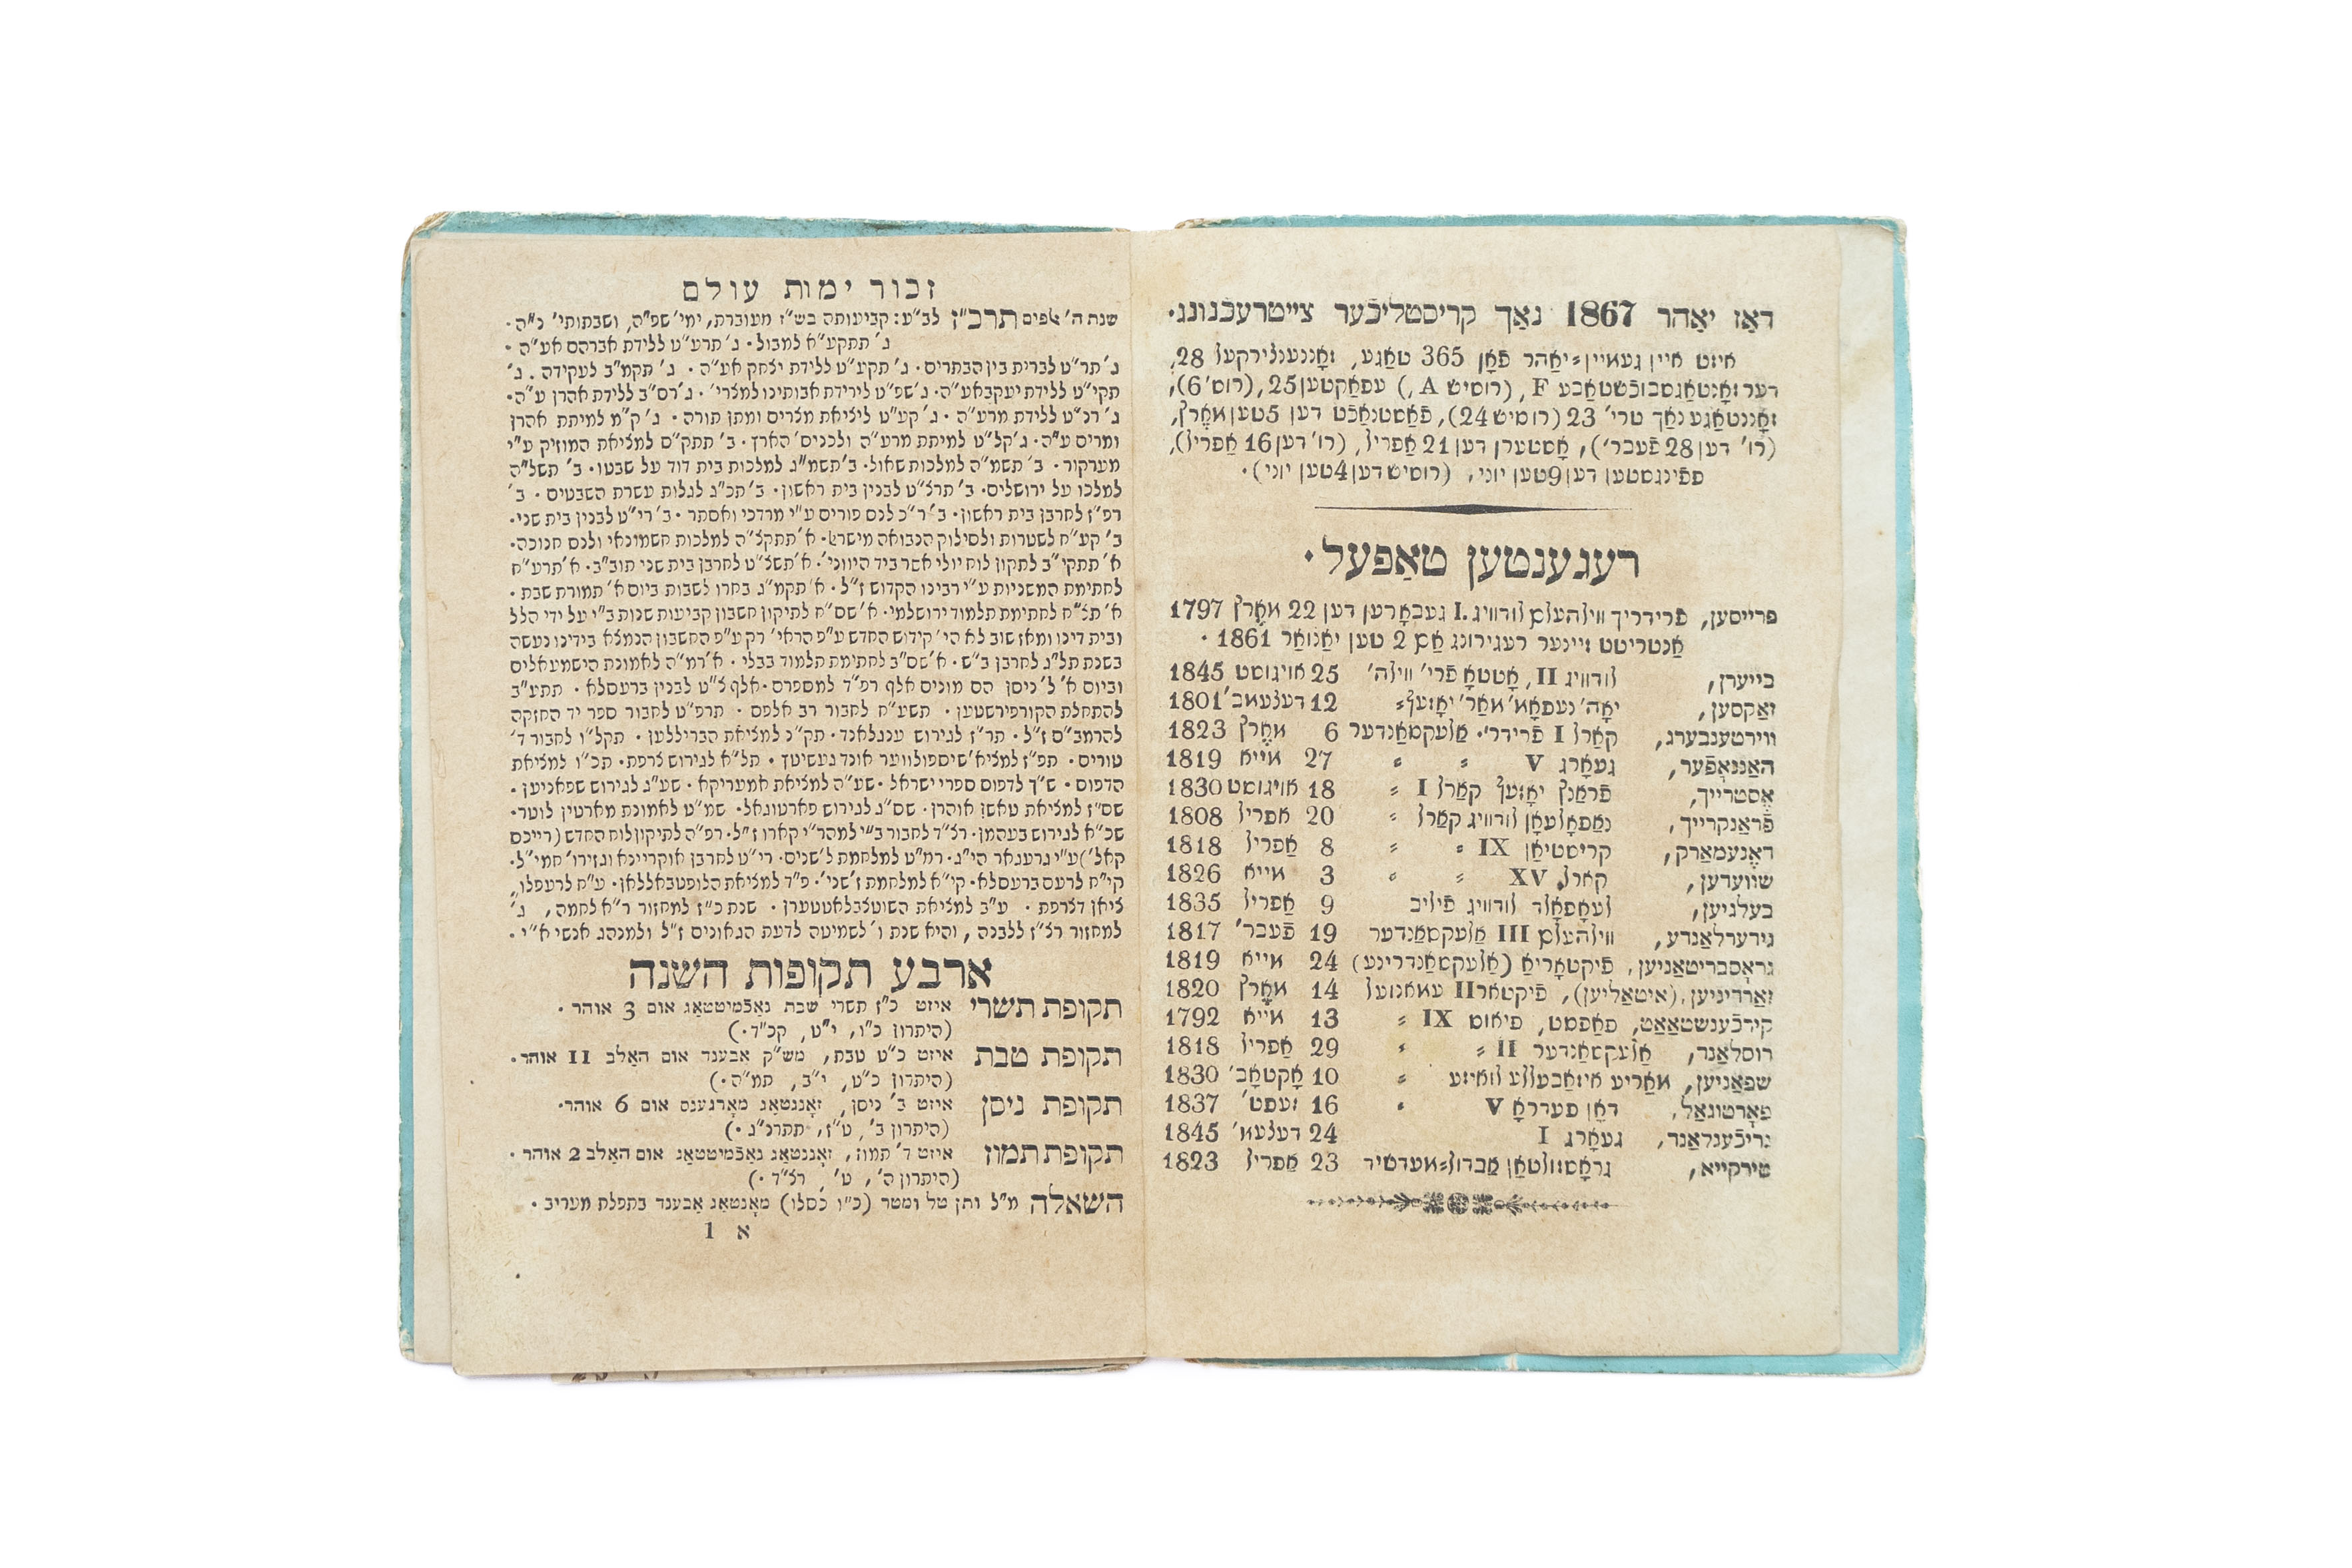 דאַז יאַהר 1867 נאַך קריסטליכֿער צייטרעכֿנונג.
איזט איין געמיין=יאַהר פֿאָן 365 טאַגע, זאָננענצירקעל 28,
דער זאָנטאַגסבוכֿשטאַבע F, (רוסיש A,) עפּאַקטען 25, (רוס' 6),
זאָננטאַגע נאַך טרי' 23 (רוסיש 24), פֿאַסטנאַכֿט דען 5טען מאֶרץ,
(רו' דען 28 פֿעבר'), אָסטערן דען 21 אַפּריל, (רו' דען 16 אַפּריל),
פּפֿינגסטען דען 9טען יוני, (רוסיש דען 4טען יוני).
רעגענטען טאַפֿעל.
פּרייסען, פֿרידריך ווילהעלם לודוויג I. געבאָרען דען 22 מאֶרץ 1797
אַנטריטט זיינער רעגירונג אַם 2 טען יאַנואַר 1861.
בייערן, לודוויג II, אָטטאָ פֿרי' ווילה' 25 אויגוסט 1845
זאַקסען, יאָה' נעפּאָמ' מאַר' יאָזעף= 12 דעצעמב' 1801
ווירטענבערג, קאַרל I פֿרידר'. אַלעקסאַנדער 6 מאֶרץ 1823
האַננאָפֿער, געאָרג V 〃 〃 27 מייא 1819
אֶסטרייך, פֿראַנץ יאָזעף קאַרל I 〃 18 אויגוסט 1830
פֿראַנקרייך, נאַפּאָלעאָן לודוויג קאַרל 〃 20 אפריל 1808
דאֶנעמאַרק, קריסטיאַן IX 〃 〃 8 אַפּריל 1818
שוועדען, קארל XV 〃 〃 3 מייא 1826
בעלגיען, לעאָפּאָלד לודוויג פֿיליפּ 9 אַפּריל 1835
נידערלאַנדע, ווילהעלם III אַלעקסאַנדער 19 פֿעבר' 1817
גראָסבריטאַניען, פֿיקטאָריאַ (אַלעקסאַנדרינע) 24 מייא 1819
זאַרדיניען, (איטאַליען), פֿיקטאר II עמאנועל 14 מאֶרץ 1820
קירכֿענשטאַאַט, פּאַפּסט, פּיאוס IX 〃 13 מייא 1792
רוסלאַנד, אַלעקסאַנדער II 〃 〃 29 אַפּריל 1818
שפּאַניען, מאַריע איזאַבעללע לואיזע 〃 10 אָקטאָב' 1830
פּאָרטוגאַל, דאָן פּעדראָ V 〃 16 זעפּט' 1837
גריכֿענלאַנד, געאָרג I 24 דעצעמ' 1845
טירקייא, גראָסזולטאַן אַבדול=מעדשיד 23 אַפּריל 1823
זכור ימות עולם
שנת ה' אלפים תרכ״ז לב״ע: קביעותה בש״ז מעוברת, ימי' שפ״ה, ושבתותי' נ״ה.
ג' תתקע״א למבול. ג' תרע״ט ללידת אברהם אע״ה.
ג' תר״ט לברית בין הבתרים. ג' תקע״ט ללידת יצחק אע״ה. ג' תקמ״ב לעקידה. ג'
תקי״ט ללידת יעקב אע״ה. ג' שפ״ט לירידת אבותינו למצרי'. ג' רס״ב ללידת אהרן ע״ה.
ג' רנ״ט ללידת מרע״ה. ג' קע״ט ליציאת מצרים ומתן תורה. ג' ק״מ למיתת אהרן
ומרים ע״ה. ג' קל״ט למיתת מרע״ה ולכניס' הארץ. ב' תתק״ס למציאת המוזיק ע״י
מערקור. ב' תשמ״ה למלכות שאול. ב' תשמ״ג למלכות בית דוד על שבטו. ב' תשל״ה
למלכו על ירושלים. ב' תרצ״ט לבנין בית ראשון. ב' תכ״ג לגלות עשרת השבטים. ב'
רפ״ז לחרבן בית ראשון. ב' ר״כ לנס פורים ע״י מרדכי ואסתר. ב' רי״ט לבנין בית שני.
ב' קע״ח לשטרות ולסילוק הנבואה מישראל. א' תתקצ״ה למלכות חשמונאי ולנס חנוכה.
א' תתקי״ב לתקון לוח יולי אשר ביד היווני'. א' תשצ״ט לחרבן בית שני תוב״ב. א' תרע״ח
לחתימת המשניות ע״י רבינו הקדוש ז״ל. א' תקמ״ג בחרו לשבות ביום א' תמורת שבת.
א' תצ״ח לחתימת תלמוד ירושלמי. א' שס״ח לתיקון חשבון קביעות שנות ב״י על ידי הלל
ובית דינו ומאז שוב לא הי' קידוש החדש ע״פ הראי' רק ע״פ החשבון הנמצא בידינו נעשה
בשנת תל״ג לחרבן ב״ש. א' שס״ב לחתימת תלמוד בבלי. א' רמ״ה לאמונת הישמעאלים
וביום א' ל' ניסן הם מונים אלף רפ״ד למספרם. אלף צ״ט לבנין ברעסלא. תתע״ב
להתחלת הקורפירשטען. תשע״ח לחבור רב אלפס. תרפ״ט לחבור ספר יד החזקה
להרמב״ם ז״ל. תר״ז לגירוש ענגלאנד. תק״נ למציאת הבריללען. תקל״ו לחבור ד'
טורים. תפ״ז למציא' שיספולווער אונד געשיטץ. תל״א לגירוש צרפת. תכ״ו למציאת
הדפוס. ש״ך לדפוס ספרי ישראל. שע״ה למציאת אמעריקא. שע״ג לגירוש שפאניען.
שס״ז למציאת טאשן אוהרן. שס״ג לגירוש פארטוגאל. שמ״ט לאמונת מארטין לוטר.
שכ״א לגירוש בעהמן. רצ״ד לחבור ב״י למהר״י קארו ז״ל. רפ״ה לתיקון לוח החדש (רייכס
קאל') ע״י גרעגאר הי״ג. רמ״ט למלחמת ל' שנים. רי״ט לחרבן אוקריינא וגזירו' חמי״ל.
קי״ח לרעס ברעסלא. קי״א למלחמת ז' שני'. פ״ד למציאת הלופטבאללאן. ע״ח לרעפלו'
ציאן דצרפת. ע״ב למציאת השוטצבלאטטערן. שנת כ״ז למחזור ר״א לחמה, ג'
למחזור רצ״ז ללבנה, והיא שנת ו' לשמיטה לדעת הגאונים ז״ל ולמנהג אנשי א״י.
ארבע תקופות השנה
תקופת תשרי איזט כ״ז תשרי שבת נאַכֿמיטטאַג אום 3 אוהר.
(היתרון כ״ו, י״ט, קכ״ד.)
תקופת טבת איזט כ״ט טבת, מש״ק אבענד אום האַלב 11 אוהר.
(היתרון כ״ט, י״ב, תמ״ה.)
תקופת ניסן איזט ב' ניסן, זאָננטאַג מאָרגענס אום 6 אוהר.
(היתרון ב', ט״ז, תתרכ״ג.)
תקופת תמוז איזט ד' תמוז, זאָננטאַג נאַכֿמיטטאַג אום האַלב 2 אוהר.
(היתרון ה', ט', רצ״ד.)
השאלה מ״ל ותן טל ומטר (כ״ו כסלו) מאָנטאַג אַבענד בתפלת מעריב.
א 1